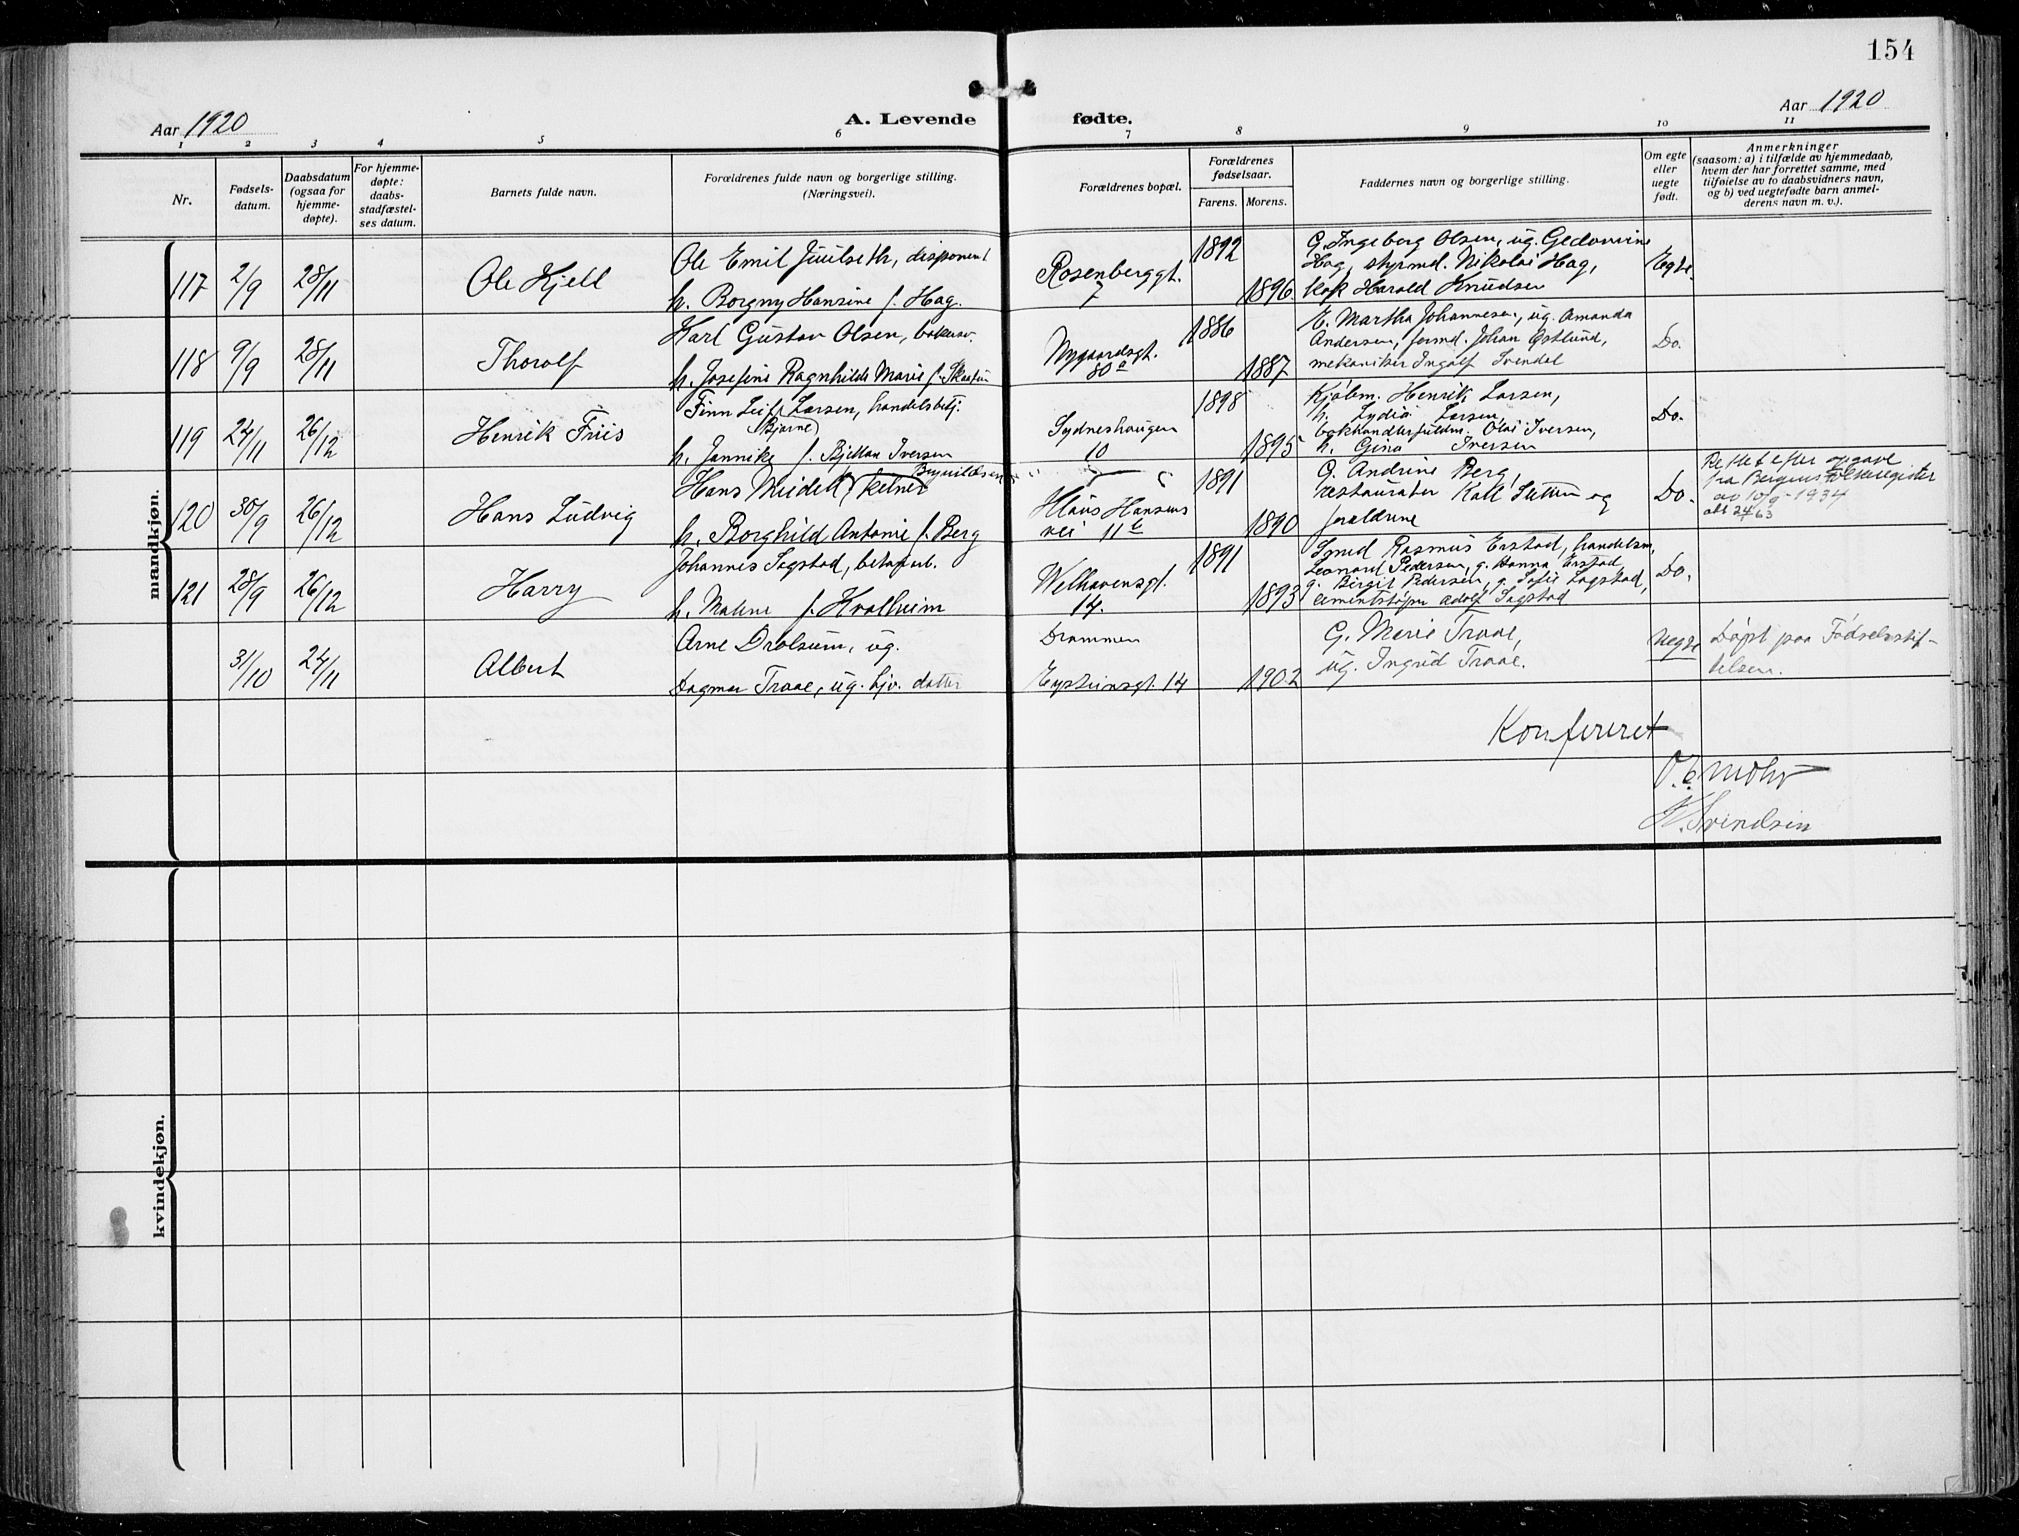 154
Aar 1920
A. Levende fødte.
Aar 1920
1 2 3 4 5 6 7 8 9 10 11
Nr.
Fødsels-
datum.
Daabsdatum
(ogsaa for
hjemme-
døpte).
For hjemme-
døpte:
daabs-
stadfæstel-
ses datum.
Barnets fulde navn.
Forældrenes fulde navn og borgerlige stilling.
(Næringsvei).
Forældrenes bopæl.
Forældrenes
fødselsaar.
Farens. Morens.
Faddernes navn og borgerlige stilling.
Om egte
eller
uegte
født.
Anmerkninger
(saasom: a) i tilfælde av hjemmedaab,
hvem der har forrettet samme, med
tilføielse av to daabsvidners navn,
og b) ved uegtefødte barn anmel-
derens navn m. v.).
mandkjøn.
117 2/9 28/11 Ole Kjell
Ole Emil Juulseth, disponent
h. Borgny Hansine f. Hag.
Rosenberggt.
7
1892
1896
G. Ingeborg Olsen, ug.
Hag, styrmd. Nikolai Hag,
kok Harald Knudsen
Egte.
118 9/9 28/11 Thorolf
Karl Gustav Olsen,
h. Josefine Ragnhilda Marie f.
Nygaardsgt.
80a
1886
1887
E. Martha Johannesen, ug. Amanda
Andersen, formd. Johan Østlund,
mekaniker Ingolf Svendal
Do.
119 24/11 26/12 Henrik Friis
Finn Leif Larsen, handelsbetj.
(Bjarne)
h. Jannike f. Iversen
Sydneshaugen
10
1898
1895
Kjøbm. Henrik Larsen,
h. Lydia Larsen,
Olai Iversen,
h. Gina Iversen
Do.
120 30/9 26/12 Hans Ludvig
Hans Meidell, kelner
h. Borghild Antonie f. Berg
Klaus Hansens
vei 11b
1891
1890
G. Andrine Berg,
restauratør og
forældrene
Do.
Rettet efter opgave
fra Bergens folkeregister
av 10/9-1934
121 28/9 26/12 Harry
Johannes Sagstad,
h. Malene f. Kvalheim
Welhavensgt.
14.
1891
1893
Smed Rasmus Erstad, handelsm.
Leonard Pedersen, g. Hanna Erstad,
g. Birgit Pedersen, g. Sofie Sagstad,
cementstøper Adolf Sagstad
Do.
31/10 24/11 Albert
Arne Drolsum, ug.
Dagmar Traae, ug. hjv. datter
Drammen
Eysteinsgt. 14
1902
G. Marie Traae,
ug. Ingrid Traae.
Uegte
Døpt paa Fødselsstif-
telsen.
Konfereret
O. C. Mohr
Svendsen
kvindekjøn.